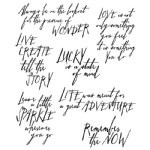 Always be on the lookout
for the presence of
WONDER
LOVE is not
only something
you feel
it is something
you do
LIVE
CREATE
tell the
STORY
LUCKY
is a state
of mind
Leave a little
SPARKLE
wherever
you go
LIFE was meant for
a great ADVENTURE
Remember
the NOW